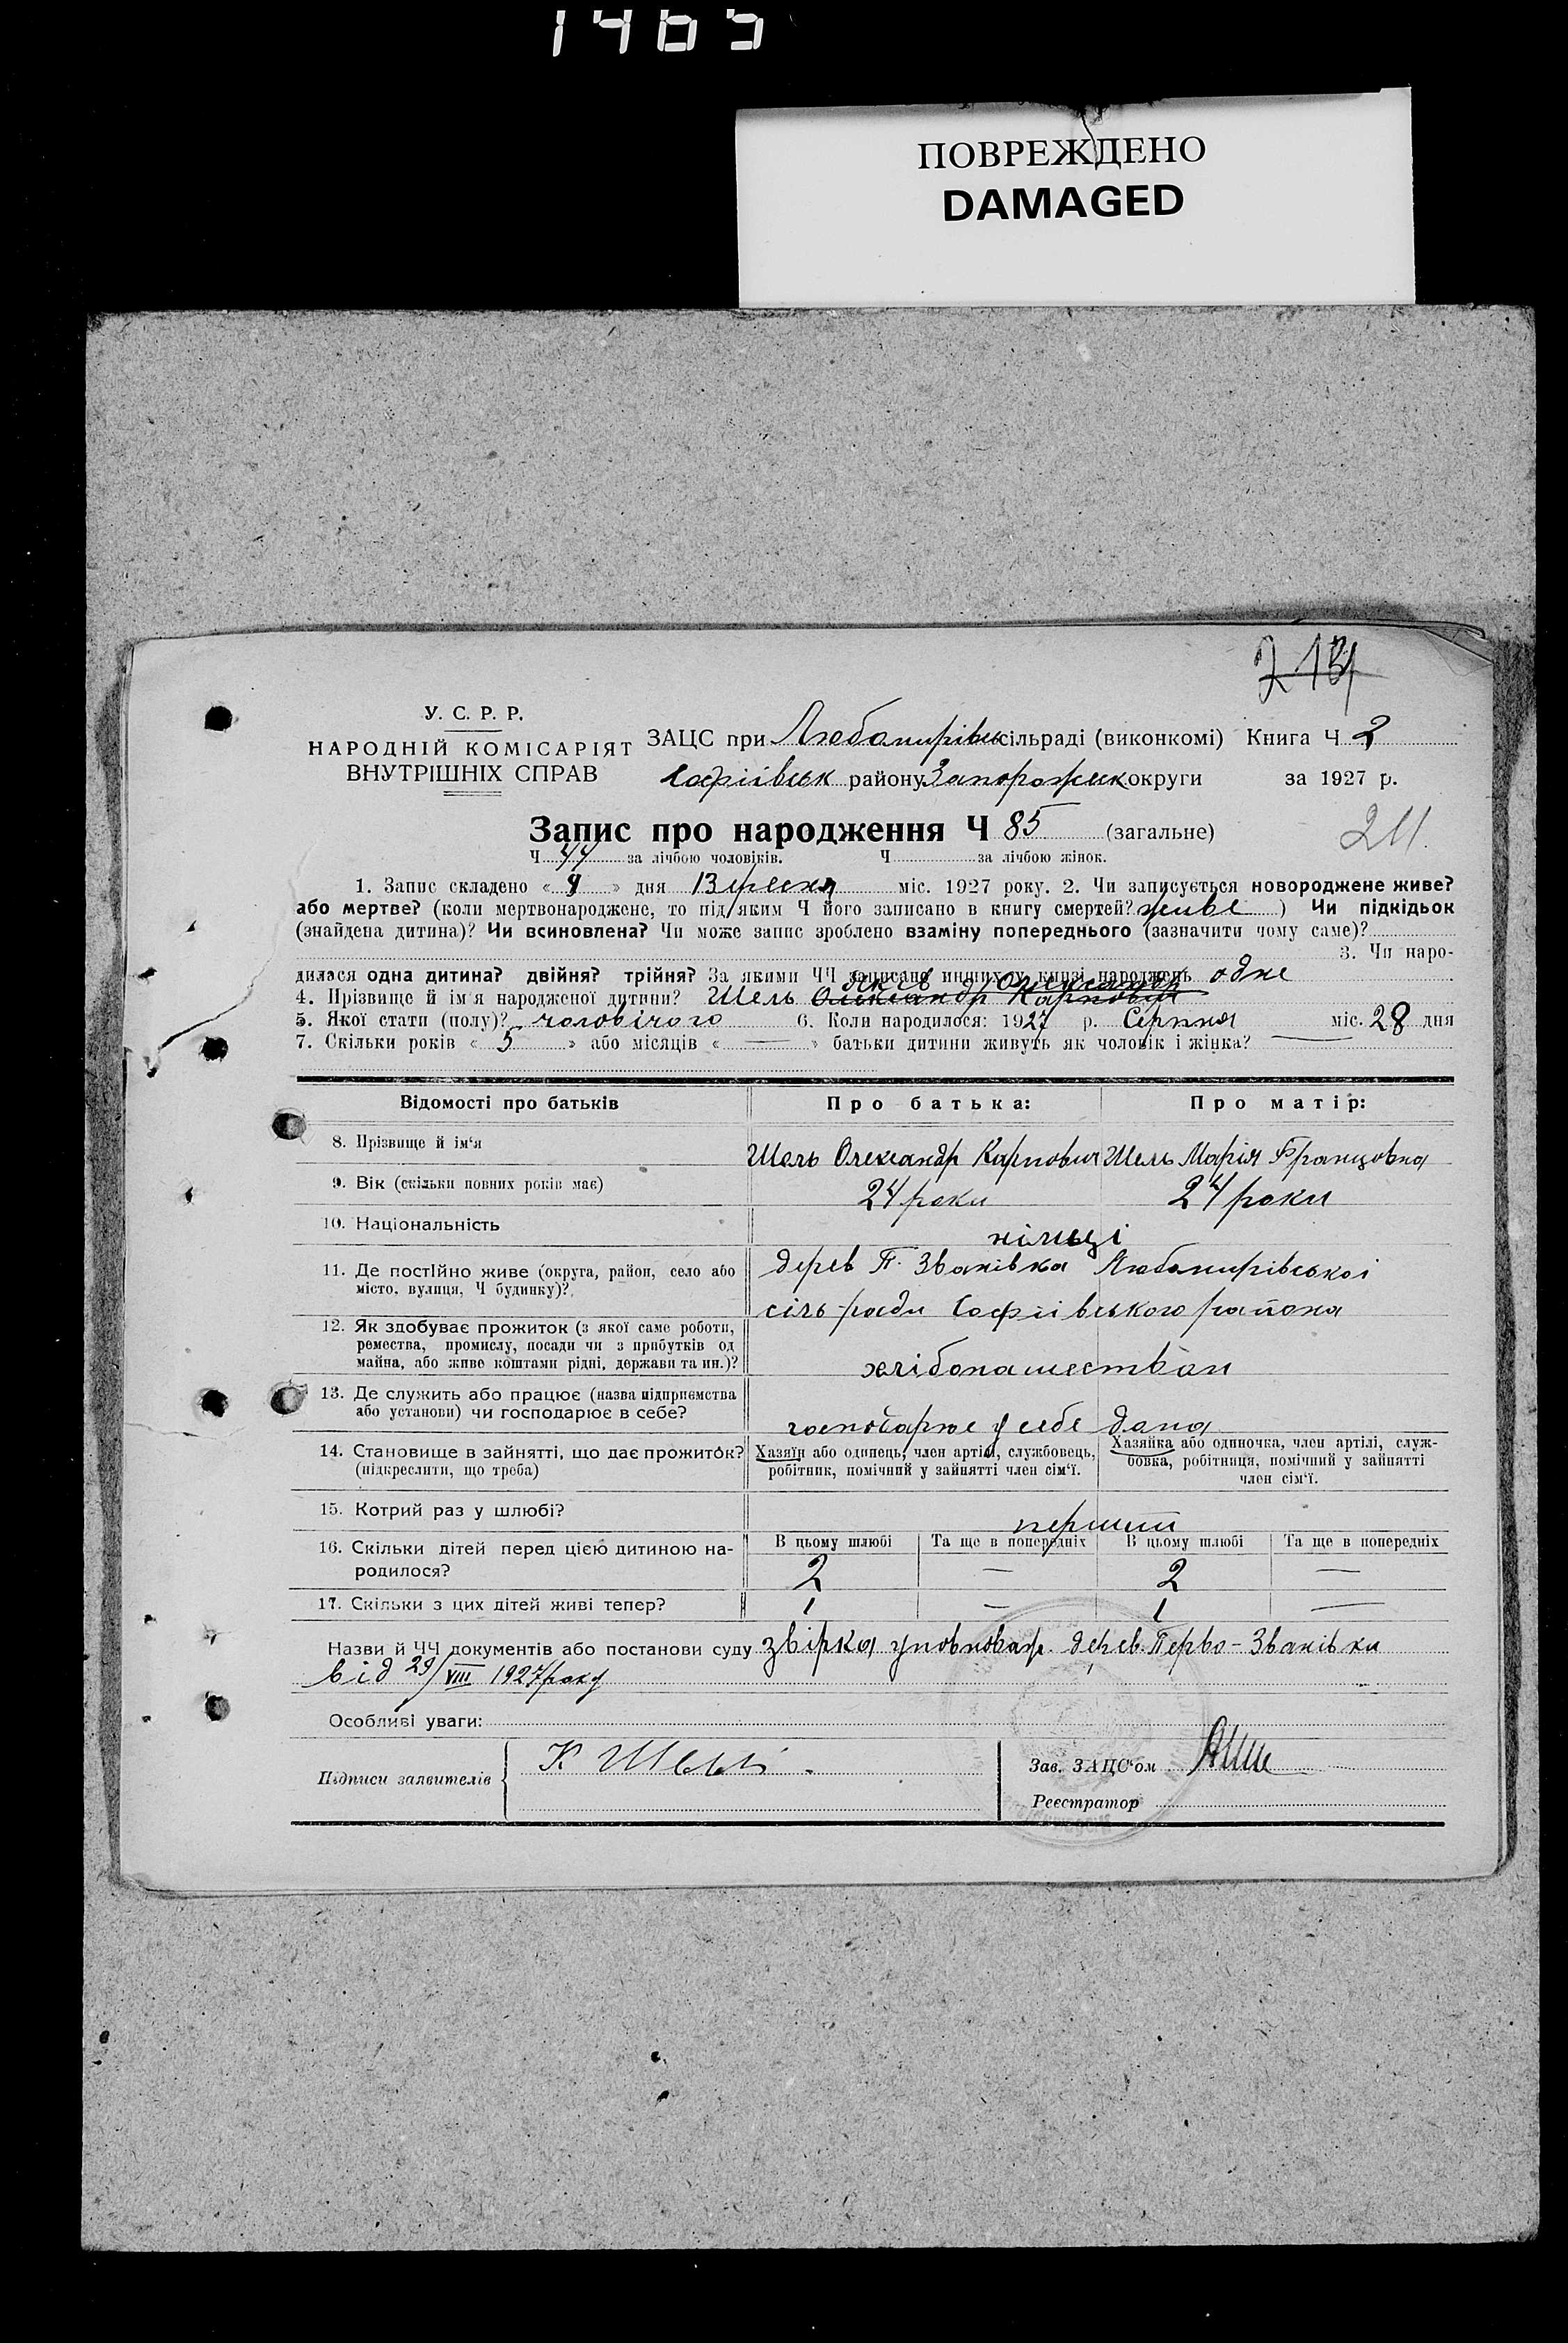 1465
ПОВРЕЖДЕНО
DAMAGED
213
У. С. Р. Р.
НАРОДНІЙ КОМІСАРІЯТ
ВНУТРІШНІХ СПРАВ
ЗАЦС при Любомирівсь сільраді (виконкомі) Книга Ч 2
Софіівськ району Запорожськ округи за 1927 р.
Запис про народження Ч 85 (загальне)
211.
Ч 44 за лічбою чоловіків. Ч за лічбою жінок.
1. Запис складено « 9 » дня Вересня міс. 1927 року. 2. Чи записується новороджене живе?
або мертве? (коли мертвонароджене, то під яким Ч його записано в книгу смертей? живе ) Чи підкідьок
(знайдена дитина)? Чи всиновлена? Чи може запис зроблено взаміну попереднього (зазначити чому саме)?
3. Чи наро-
дилася одна дитина? двійня? трійня? За якими ЧЧ записано инших у книзі народжень одне
4. Прізвище й ім'я народженої дитини? Шель Олександр Карпович
5. Якої стати (полу)? чоловічого 6. Коли народилося: 1927 р. Серпня міс. 28 дня
7. Скільки років « 5 » або місяців « — » батьки дитини живуть як чоловік і жінка? —
Відомості про батьків Про батька: Про матір:
8. Прізвище й ім'я Шель Олександр Карпович Шель Марія Францовна
9. Вік (скільки повних років має) 24 роки 24 роки
10. Національність німьці
11. Де постійно живе (округа, район, село або
місто, вулиця, Ч будинку)?
дерев П. Званівка Любомирівськоі
сіль-ради Софіівського района
12. Як здобуває прожиток (з якої саме роботи,
ремества, промислу, посади чи з прибутків од
майна, або живе коштами рідні, держави та ин.)?
хлібопашеством
13. Де служить або працює (назва підприємства
або установи) чи господарює в себе?
господарює у себе дома
14. Становище в зайнятті, що дає прожиток?
(підкреслити, що треба)
Хазяїн або одинець, член артілі, службовець,
робітник, помічний у зайнятті член сім'ї.
Хазяйка або одиночка, член артілі, служ-
бовка, робітниця, помічний у зайнятті
член сім'ї.
15. Котрий раз у шлюбі? перший
16. Скільки дітей перед цією дитиною на-
родилося?
В цьому шлюбі Та ще в попередніх В цьому шлюбі Та ще в попередніх
2 — 2 —
17. Скільки з цих дітей живі тепер? 1 — 1 —
Назви й ЧЧ документів або постанови суду звірка уповноваж. дерев. Перво-Званівки
від 29/VIII 1927 року
Особливі уваги:
Підписи заявителів
Зав. ЗАЦС'ом
Реєстратор